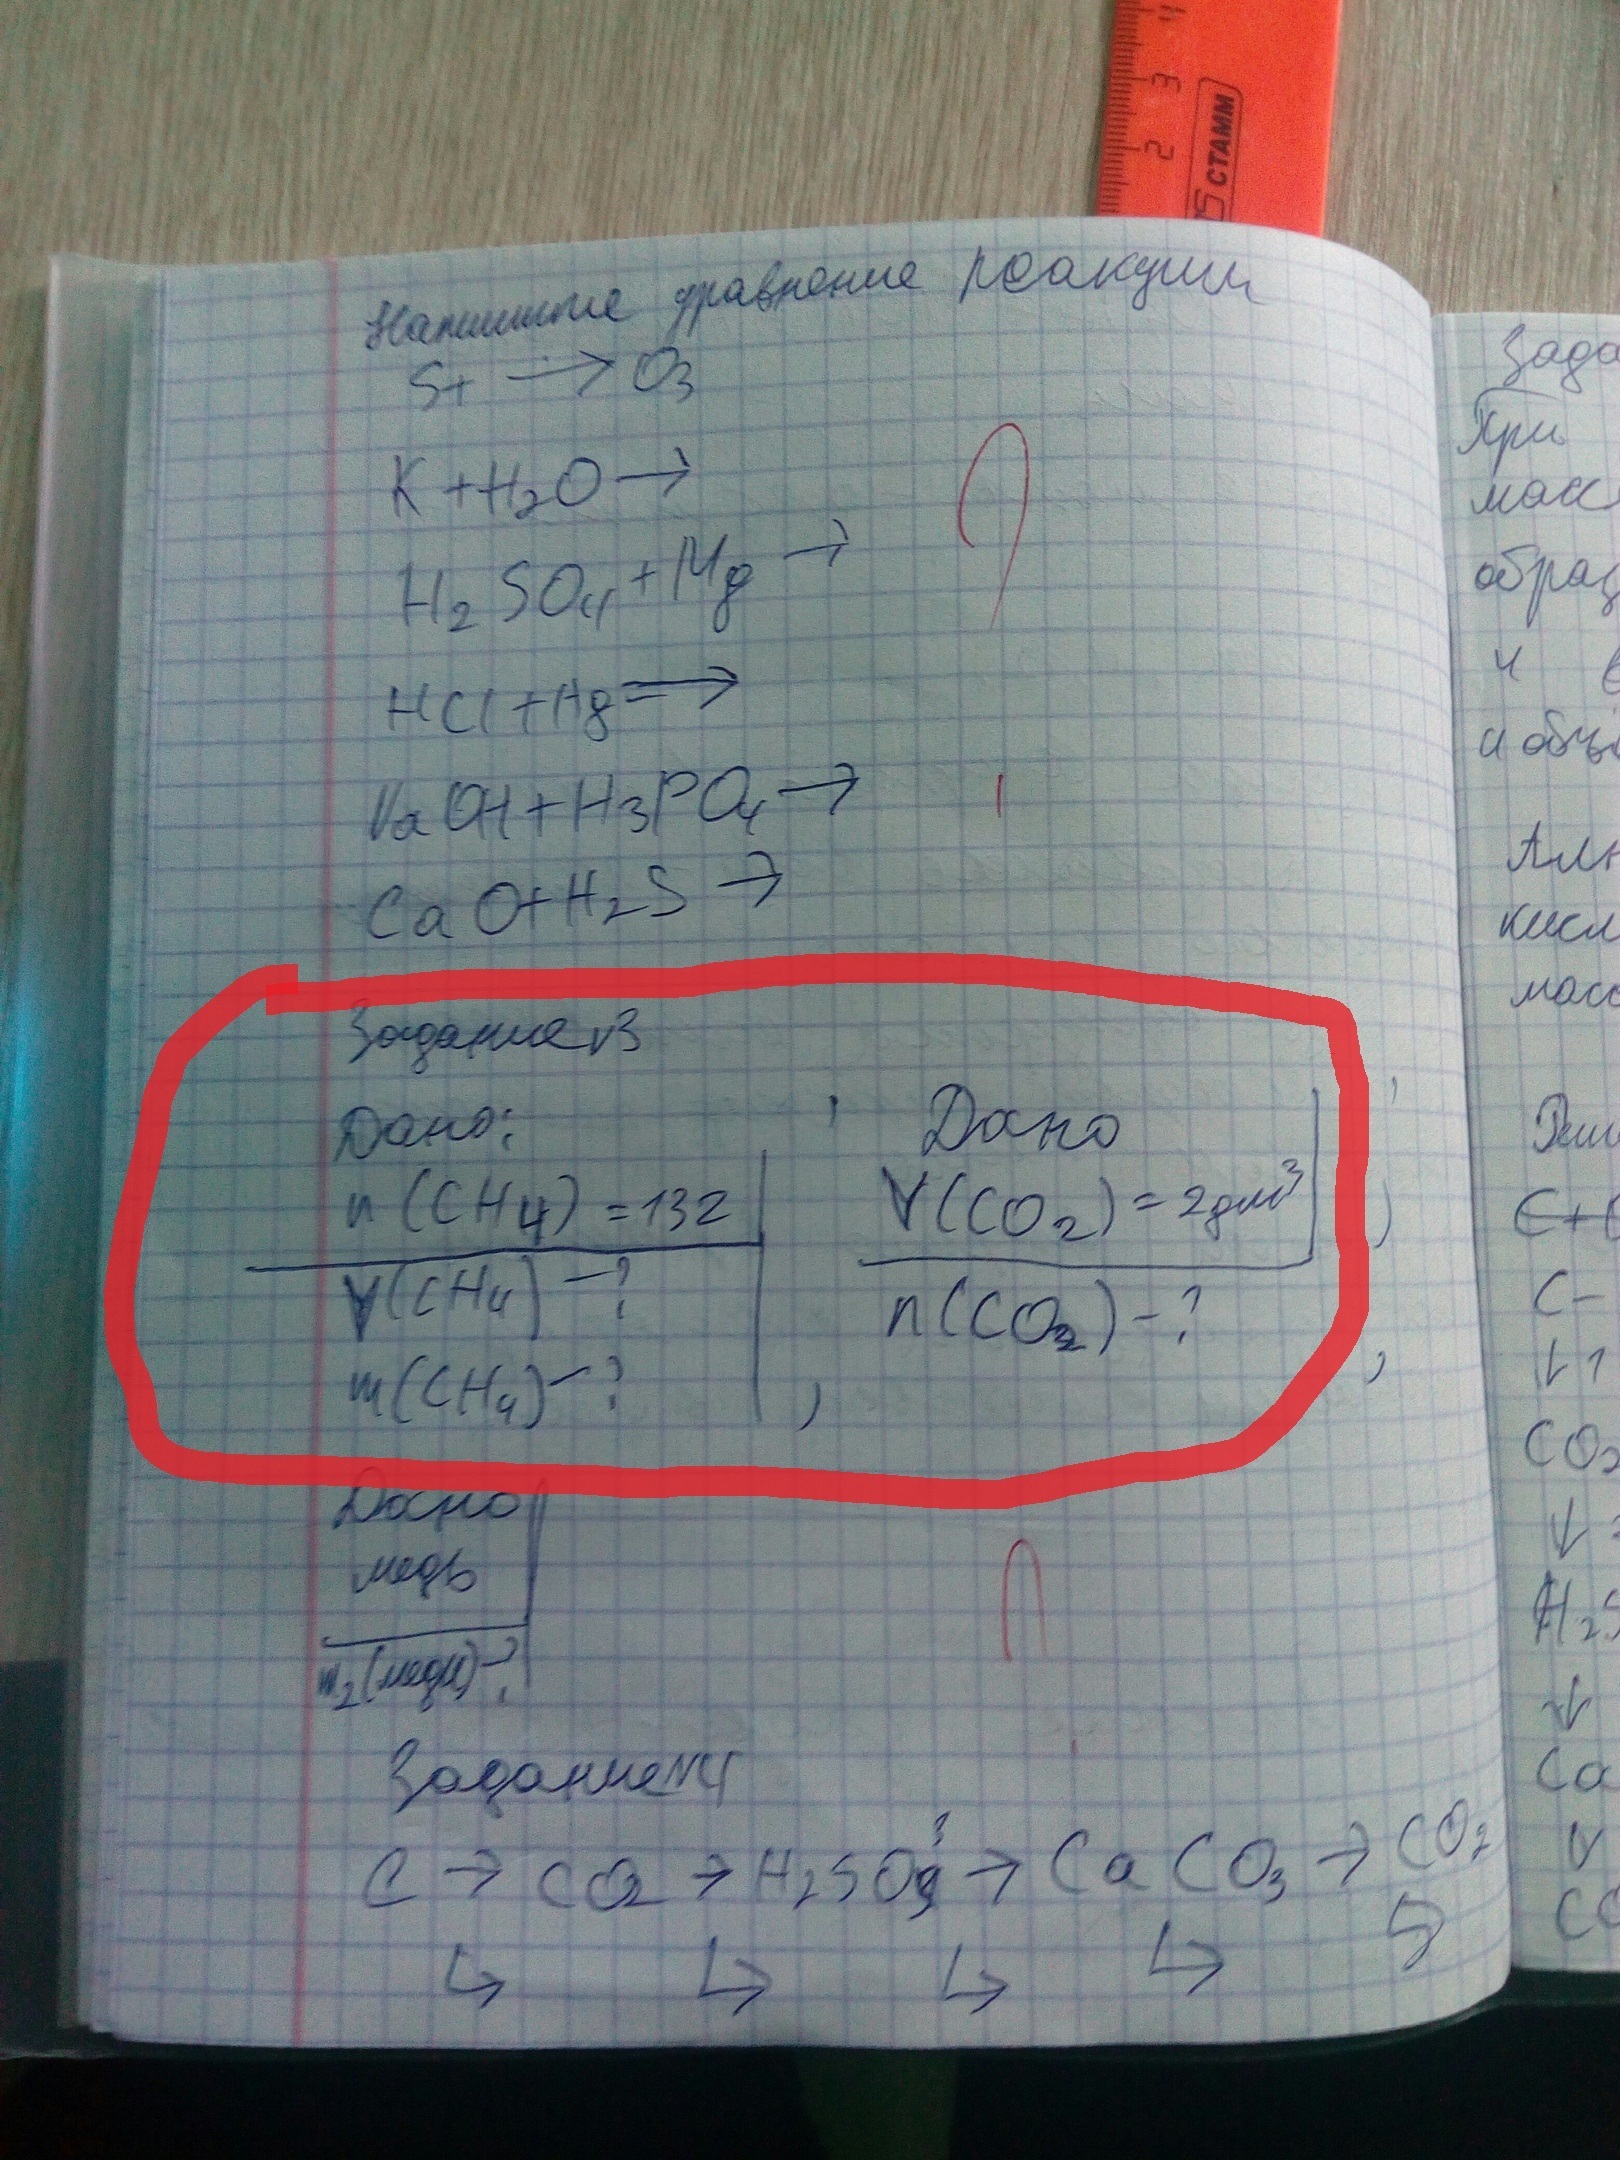 4
3
2
СТАММ
Напишите уравнение реакции
S+ → O3
K + H2O →
H2SO4 + Mg →
HCl + Hg →
NaOH + H3PO4 →
CaO + H2S →
Задание №3
Дано:
n(CH4) = 132
V(CH4) - ?
m(CH4) - ?
Дано
V(CO2) = 2дм³
n(CO2) - ?
Дано
медь
m2(меди) - ?
Задание №4
C → CO2 → H2SO3 → CaCO3 → CO2
Зада
При
масс
образ
и в
и объё
Алю
кисл
масс
Реш
C + 
C -
CO2
H2S
Ca
CO